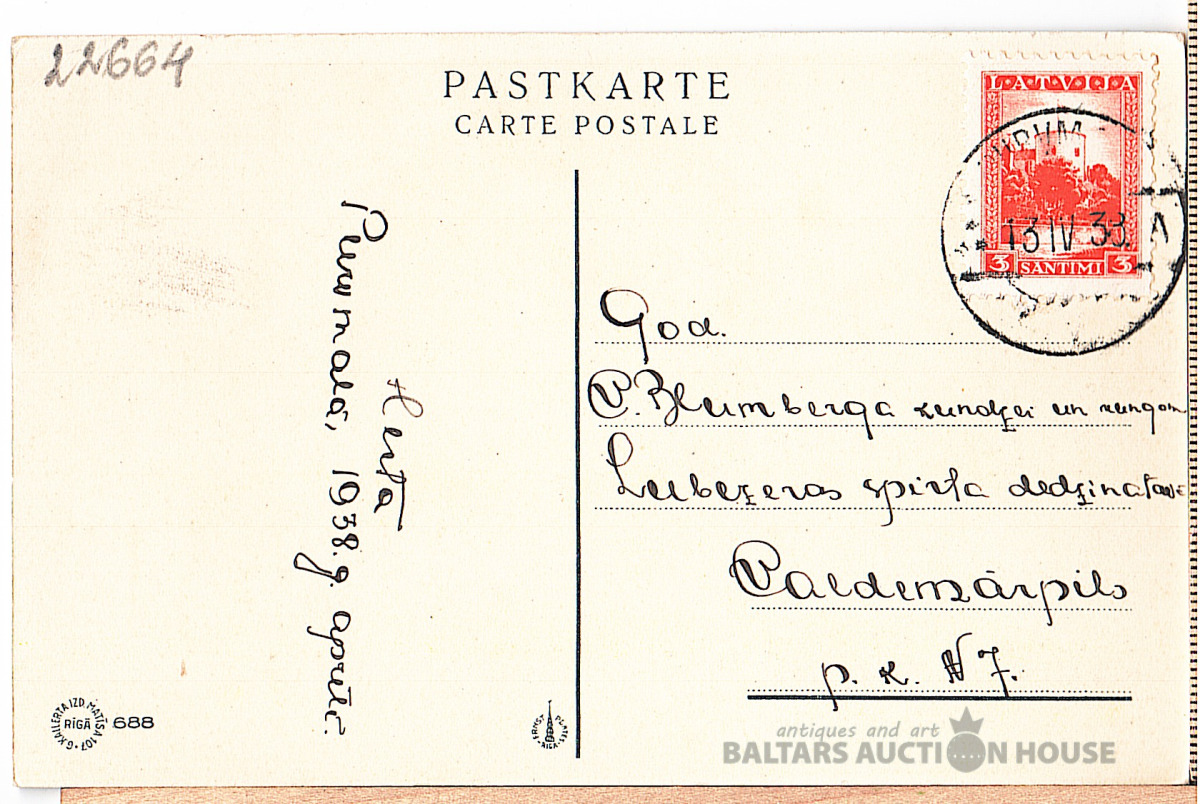 22664
PASTKARTE
CARTE POSTALE
LATVIJA
13 IV 38. A
3 SANTIMI 3
God.
V. Blumberga kundzei un kungam
Lubezeras spirta dedzinatavā
Valdemārpils
p. k. N 7.
Herta
1938. g. aprīlī.
G. KĀLERTA IZD. MATĪSA 107
RĪGĀ
688
ERNST PLATES
RIGA
antiques and art
BALTARS AUCTION HOUSE